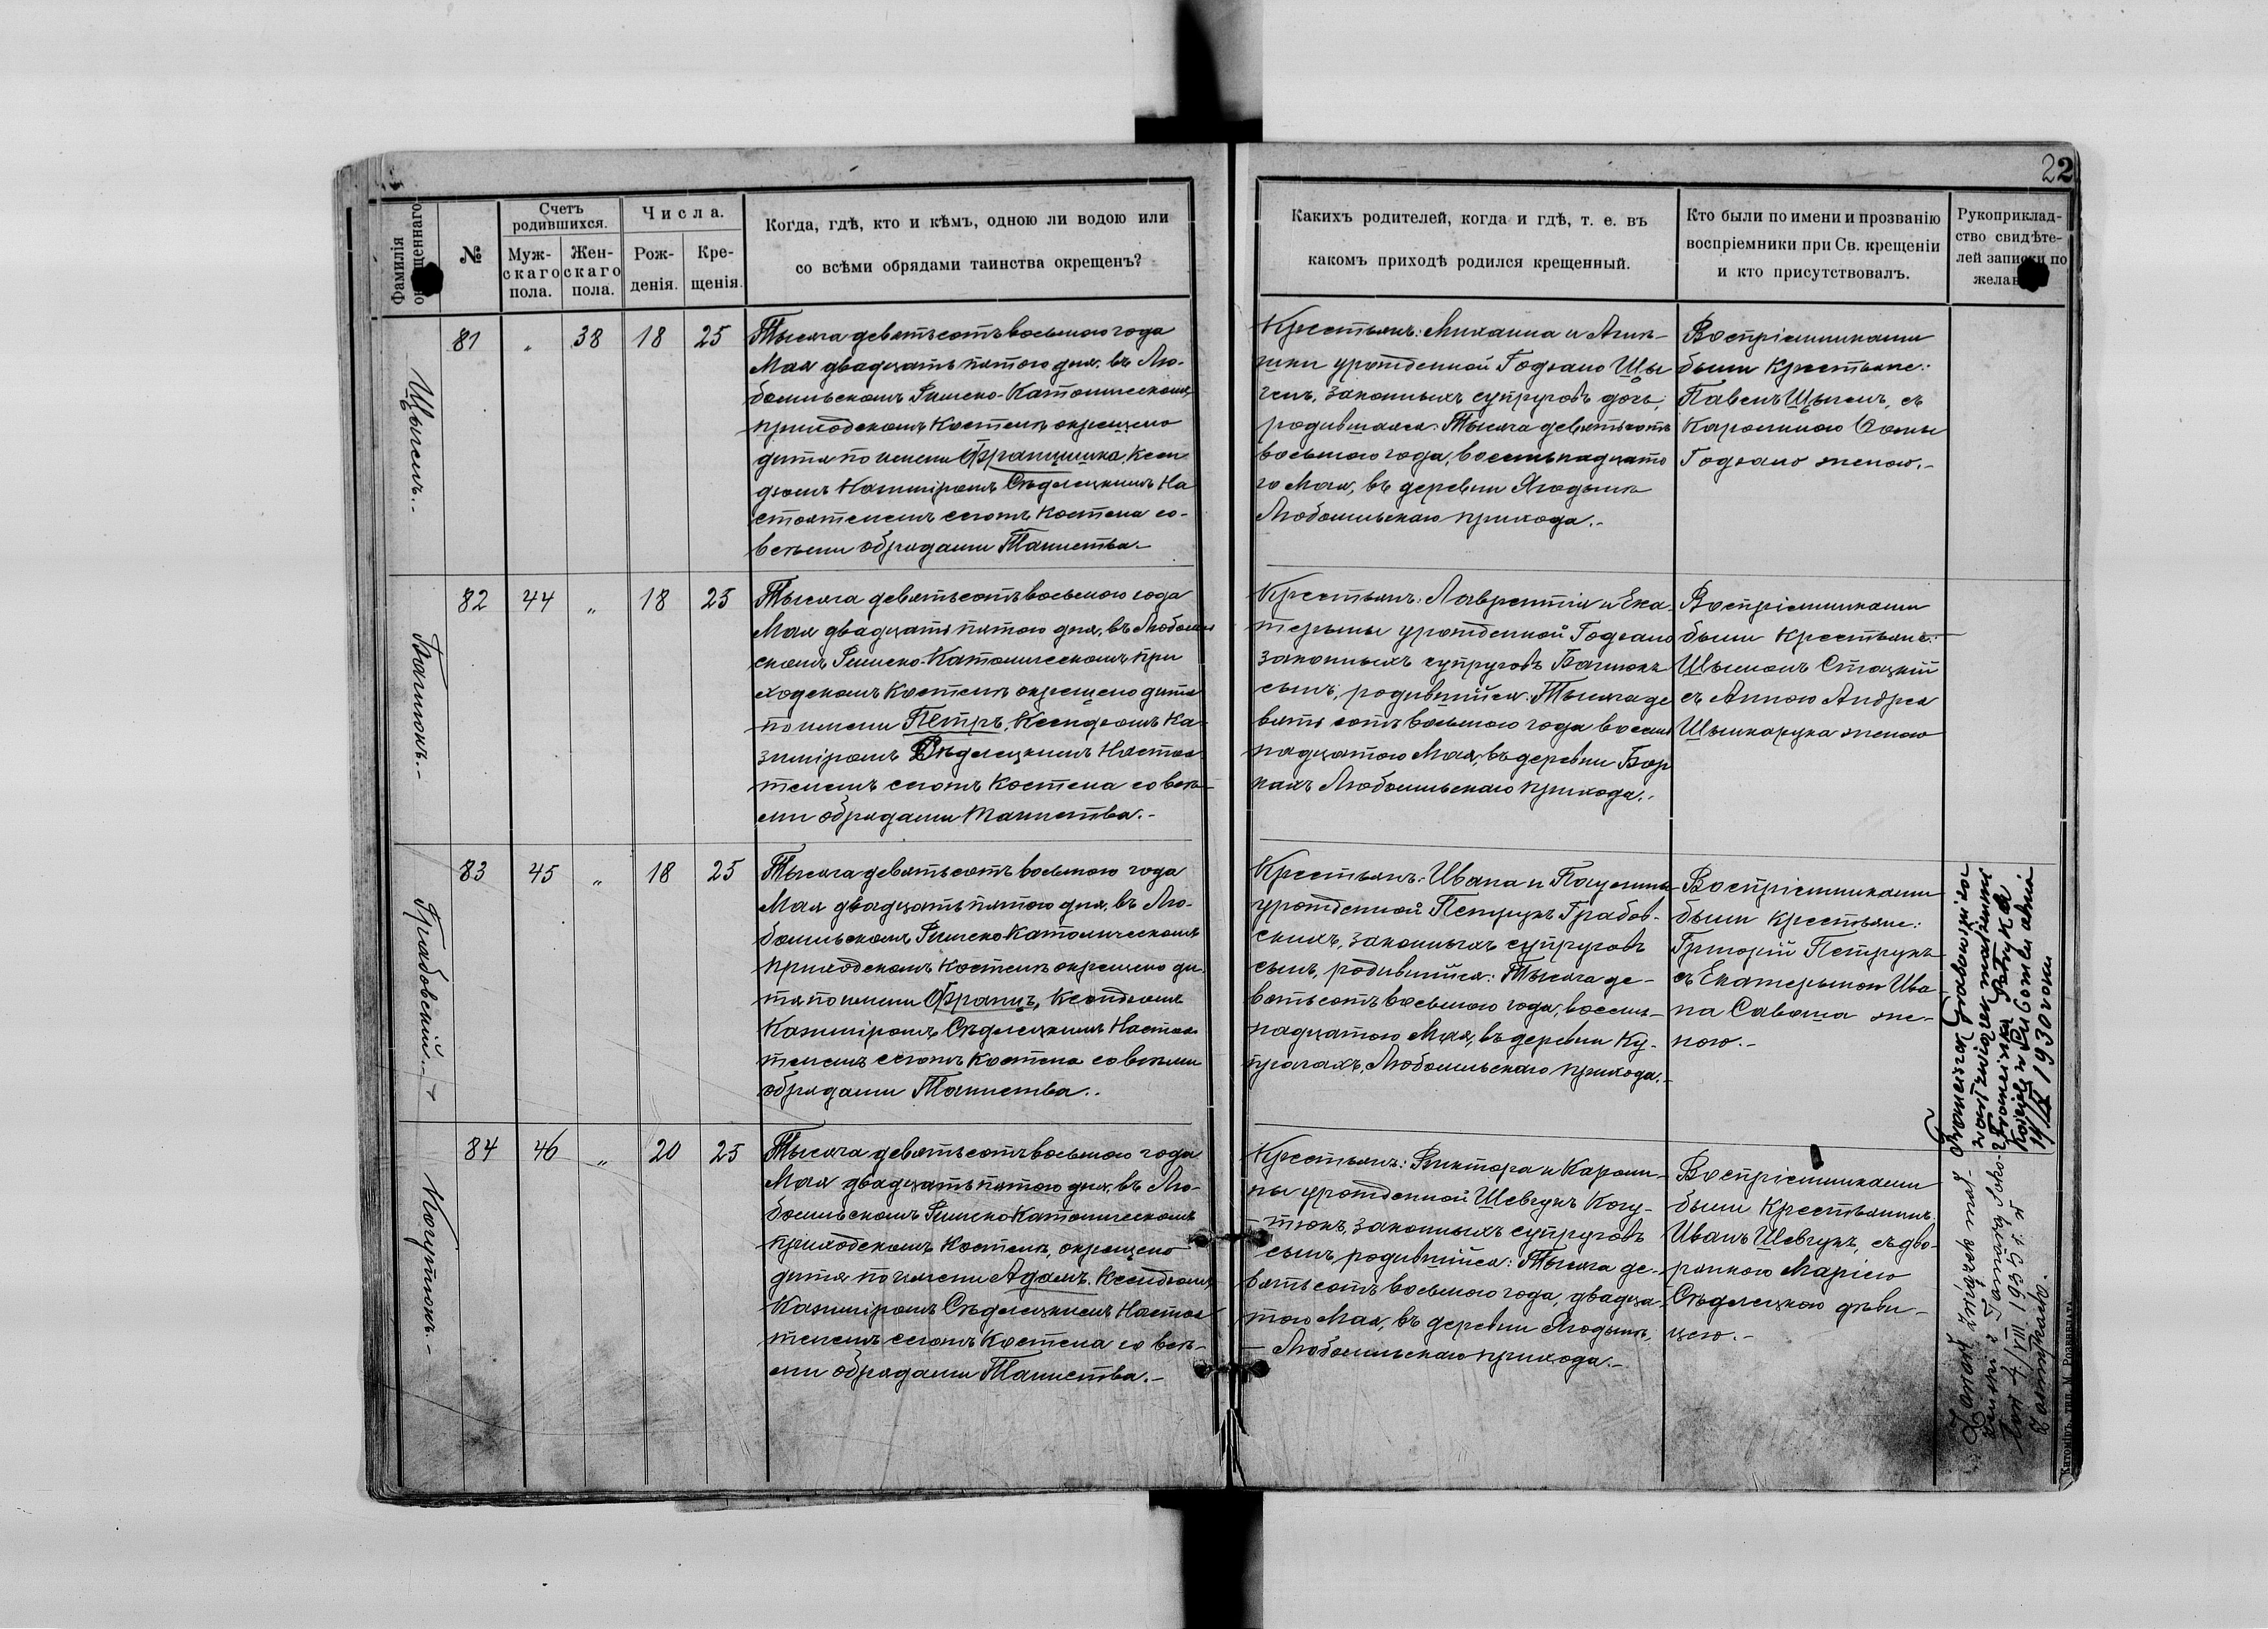 22
Фамилія окрещеннаго
№
Счетъ родившихся.
Муж-
скаго
пола.
Жен-
скаго
пола.
Числа.
Рож-
денія.
Кре-
щенія.
Когда, гдѣ, кто и кѣмъ, одною ли водою или
со всѣми обрядами таинства окрещенъ?
Какихъ родителей, когда и гдѣ, т. е. въ
какомъ приходѣ родился крещенный.
Кто были по имени и прозванію
воспріемники при Св. крещеніи
и кто присутствовалъ.
Рукоприклад-
ство свидѣте-
лей записки по
желан
Щыгелъ.-
81 " 38 18 25
Тысяча девятьсотъ восьмого года
Мая двадцать пятого дня, въ Лю-
бомльскомъ Римско-Католическомъ
приходскомъ Костелѣ окрещено
дитя по имени Францишка, Ксен
дзомъ Казиміромъ Сѣдлецкимъ На
стоятелемъ сегожъ Костела со-
всѣми обрядами Таинства.-
Крестьянъ: Михаила и Агнѣ-
шки урожденной Годзало Щы
гелъ, законныхъ супруговъ дочь,
родившаяся: Тысяча девятьсотъ
восьмого года, восемьнадцато
го Мая, въ деревни Ягодынѣ
Любомльскаго прихода.-
Воспріемниками
были Крестьяне:
Павелъ Щыгелъ, съ
Каролиною Фомы
Годзало женою.-
Баглюкъ.-
82 44 " 18 25
Тысяча девятьсотъ восьмого года
Мая двадцать пятого дня, въ Любомль
скомъ Римско-Католическомъ при
ходскомъ Костелѣ окрещено дитя
по имени Петръ, Ксендзомъ Ка-
зиміромъ Сѣдлецкимъ Настоя
телемъ сегожъ Костела со всѣ-
ми обрядами Таинства.-
Крестьянъ: Лаврентія и Ека-
терыны урожденной Годзало
законныхъ супруговъ Баглюкъ
сынъ, родившійся: Тысяча де
вятьсотъ восьмого года восемь
надцатого Мая, въ деревни Бор
кахъ Любомльскаго прихода.-
Воспріемниками
были Крестьяне:
Шымонъ Стоцкій
съ Анною Андрея
Шышкарука женою
Грабовскій.-
83 45 " 18 25
Тысяча девятьсотъ восьмого года
Мая двадцать пятого дня, въ Лю-
бомльскомъ Римско Католическомъ
приходскомъ Костелѣ окрещено ди-
тя по имени Францъ, Ксендзомъ
Казиміромъ Сѣдлецкимъ Настоя
телемъ сегожъ Костела со всѣми
обрядами Таинства.-
Крестьянъ: Ивана и Паулины
урожденной Петрукъ Грабов-
скихъ, законныхъ супруговъ
сынъ, родившійся: Тысяча де-
вятьсотъ восьмого года, восемь-
надцатого Мая, въ деревни Ку-
, Любомльскаго прихода.-
Воспріемниками
были крестьяне:
Григорій Петрукъ
съ Екатерыною Ива
на Саваша же-
ною.-
Franciszek Grabowski
związek małżeński
Kościele w Lubomlu dnia
1930 roku
Когутюкъ.-
84 46 " 20 25
Тысяча девятьсотъ восьмого года
Мая двадцать пятого дня, въ Лю-
бомльскомъ Римско Католическомъ
приходскомъ Костелѣ, окрещено
дитя по имени Адамъ, Ксендзомъ
Казиміромъ Сѣдлецкимъ Настоя
телемъ сегожъ Костела со всѣ-
ми обрядами Таинства.-
Крестьянъ: Виктора и Кароли-
ны урожденной Шевчукъ Когу-
тюкъ, законныхъ супруговъ
сынъ, родившійся: Тысяча де-
вятьсотъ восьмого года, двадца-
того Мая, въ деревни Ягодынѣ,
Любомльскаго прихода.-
Воспріемниками
были Крестьянинъ
Иванъ Шевчукъ, съ дво-
рянкою Маріею
Сѣдлецкою дѣви-
цею.-
Zawarł związek mał-
żeński z Tamarą